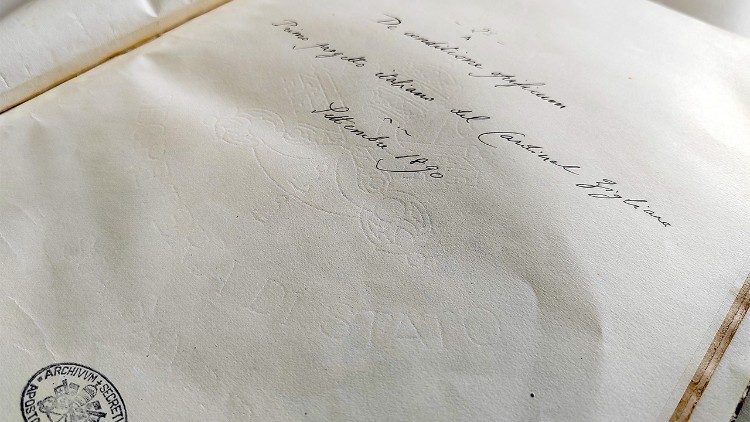 De conditione opificum
Primo progetto italiano del Cardinal Zigliara
Settembre 1890
DI STATO
ARCHIVVM SECRET
APOSTO